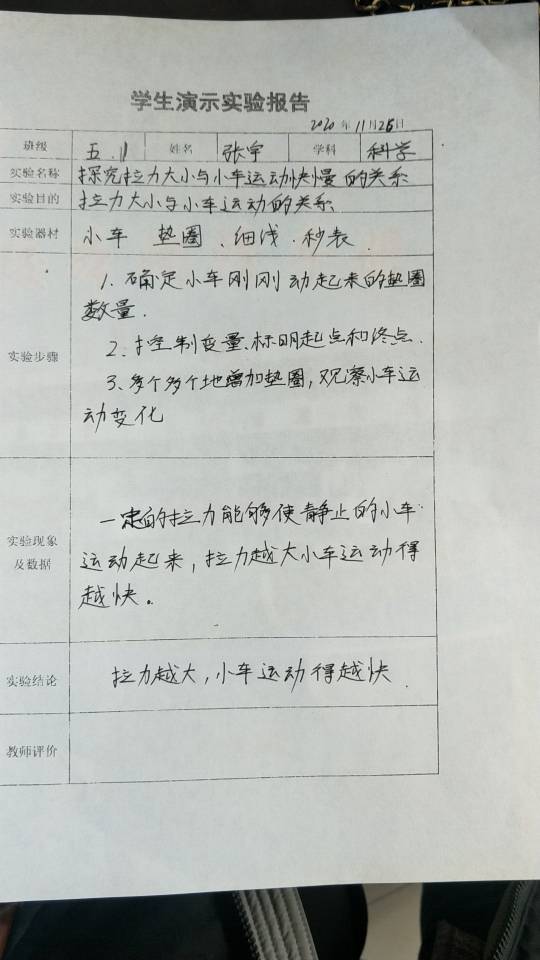 学生演示实验报告
2020年11月26日
班级 五.11 姓名 张宇 学科 科学
实验名称 探究拉力大小与小车运动快慢的关系
实验目的 拉力大小与小车运动的关系
实验器材 小车 垫圈、细线、秒表.
实验步骤
1. 确定小车刚刚动起来的垫圈
数量.
2. 控制变量、标明起点和终点.
3、多个多个地增加垫圈,观察小车运
动变化
实验现象
及数据
一定的拉力能够使静止的小车
运动起来,拉力越大小车运动得
越快。
实验结论 拉力越大,小车运动得越快.
教师评价